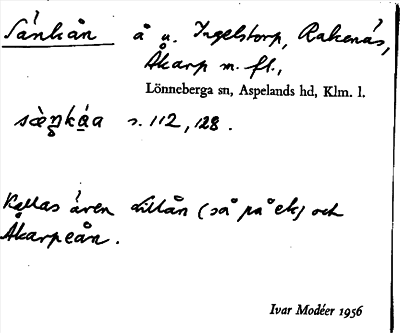 Sänkån å u. Ingelstorp, Rakenäs,
Åkarp m. fl.,
Lönneberga sn, Aspelands hd, Klm. l.
s. 112, 128.
Kallas även Lillån (så på ek) och
Åkarpeån.
Ivar Modéer 1956